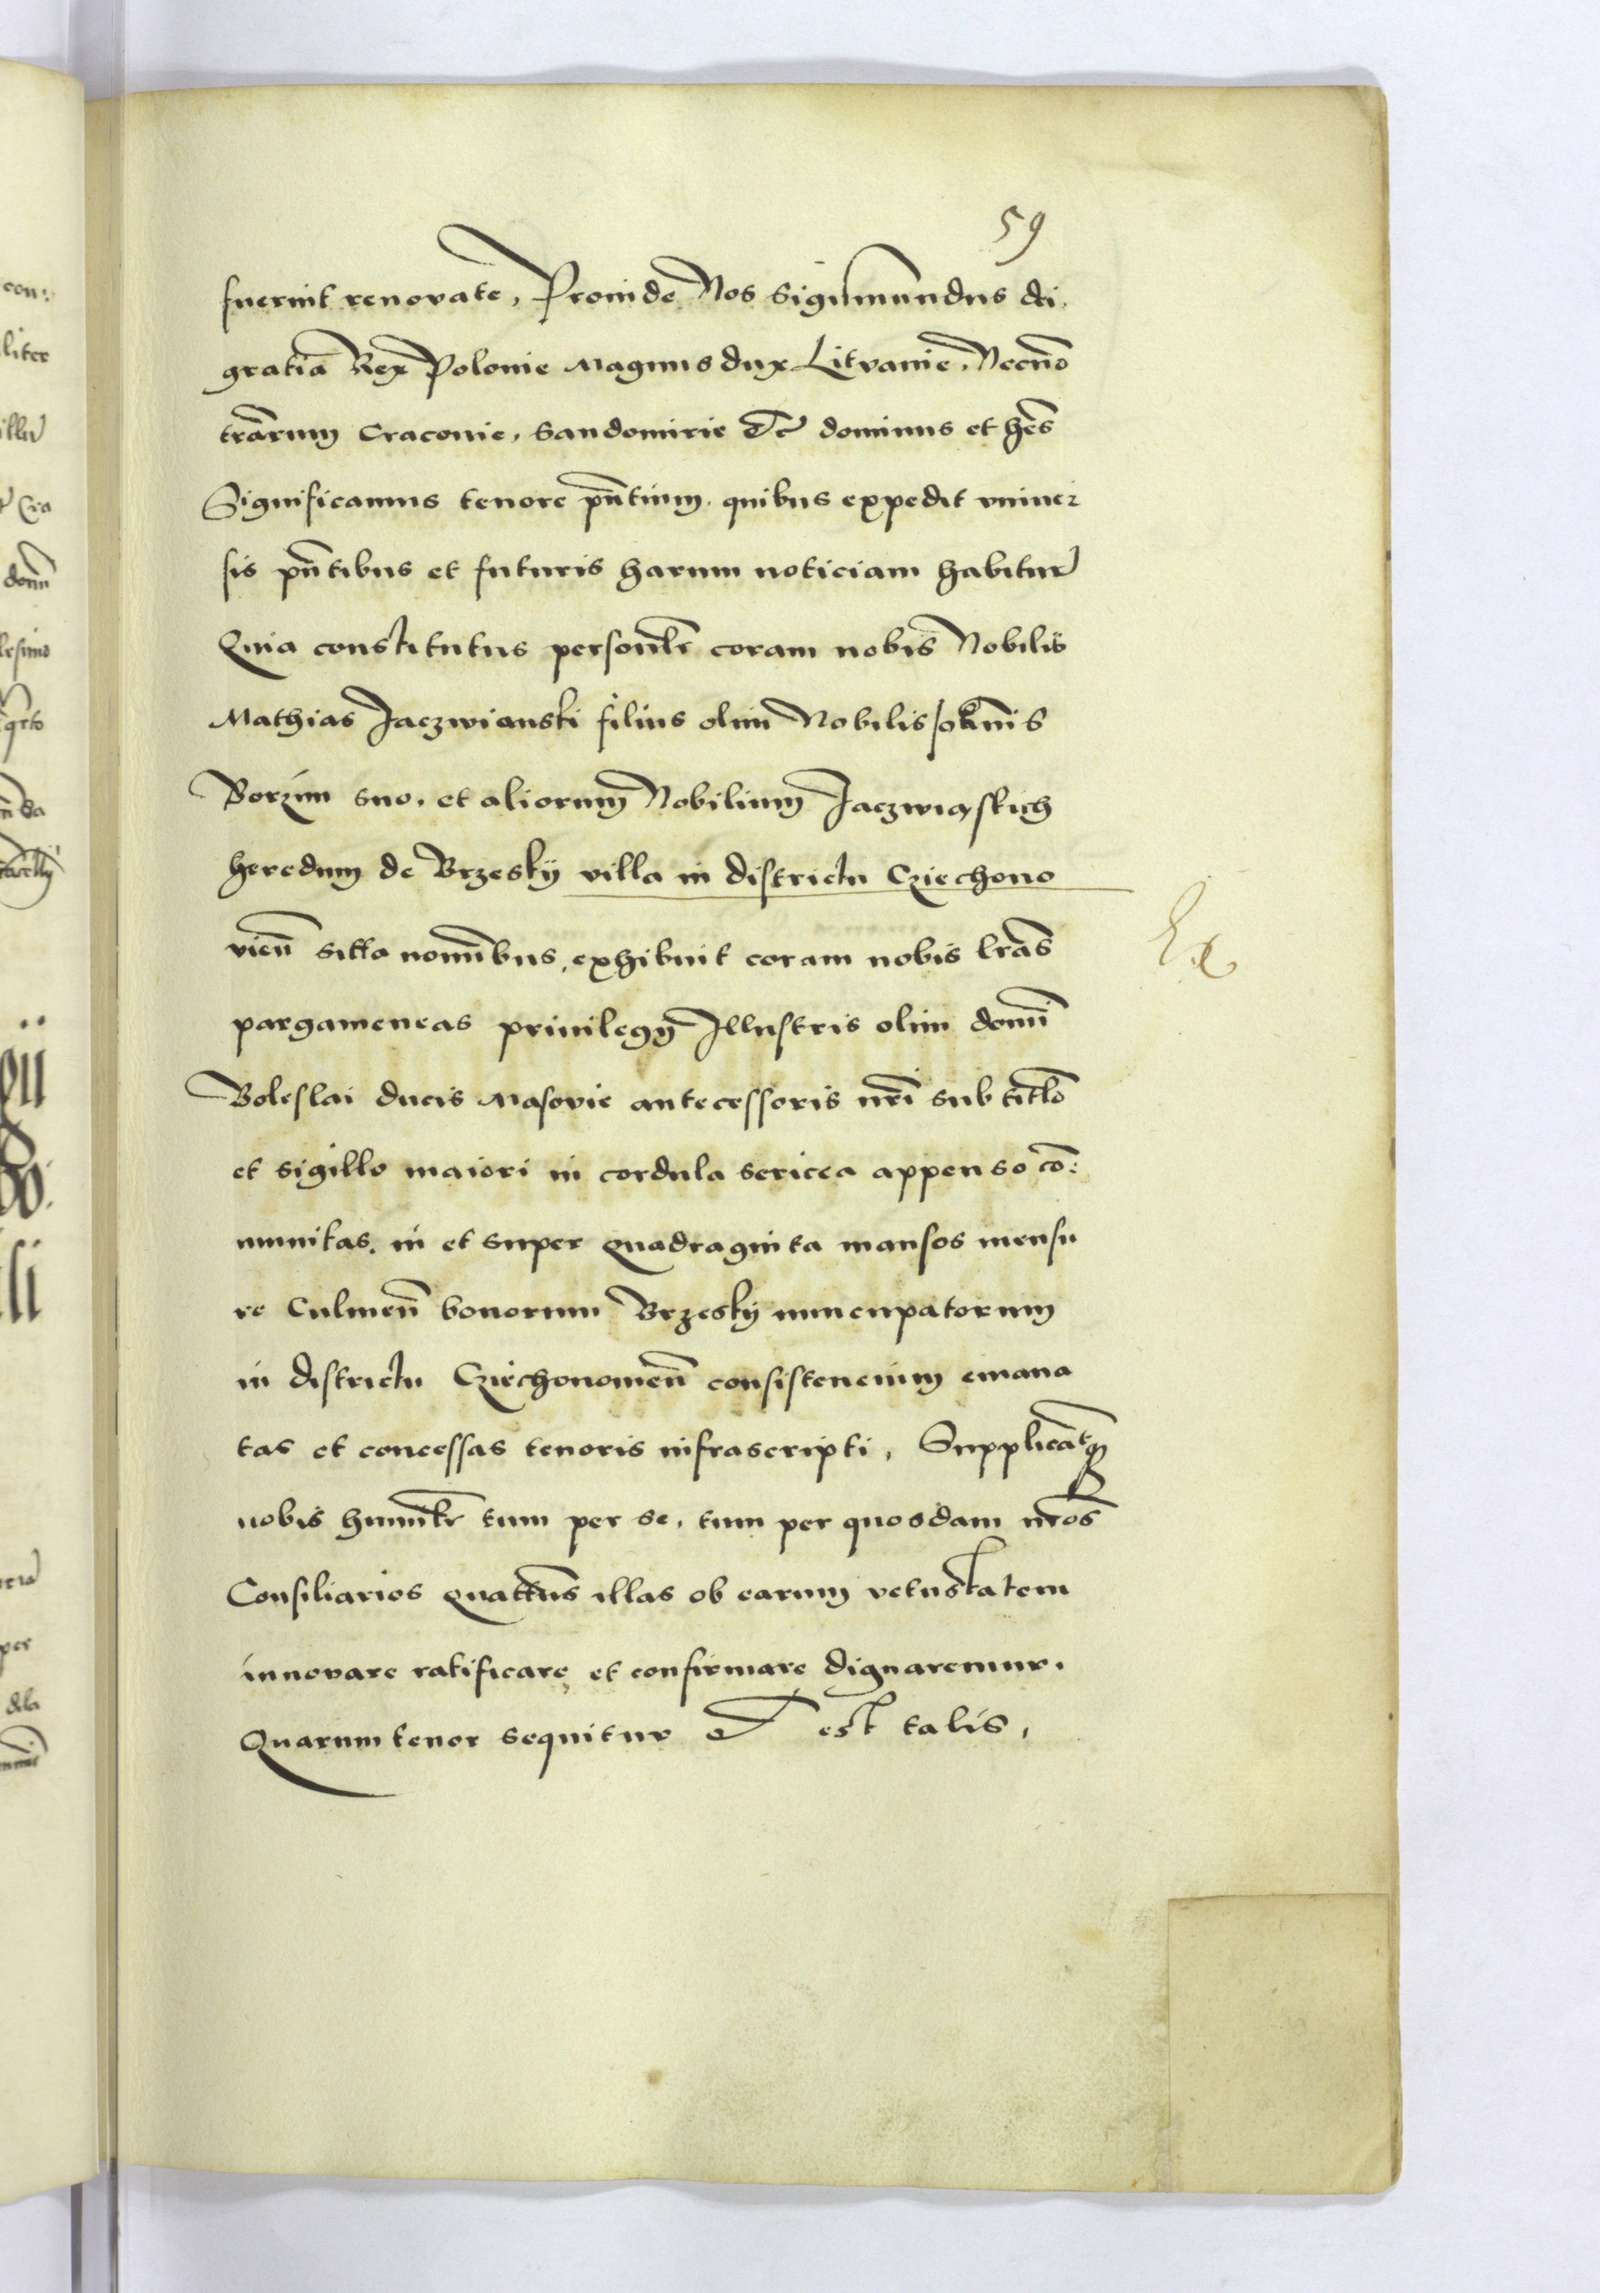 59
fuerint renovate, Proinde Nos Sigismundus dei
gratia Rex Polonie Magnus dux Litvanie, Necno
trarum Cracovie, Sandomirie &c dominus et hes
Significamus tenore pntium quibus expedit univer
sis pntibus et futuris harum noticiam habitur
Quia constitutus personlr coram nobis Nobilis
Mathias Jaczwianski filius olim Nobilis Johnis
Borzim suo, et aliorum Nobilium Jaczwiąskich
heredum de Brzesky villa in districtu Cziechono
vien sitta nomibus, exhibuit coram nobis lras
pargameneas privilegy Illustris olim domi
Boleslai ducis Masovie antecessoris nri sub titlo
et sigillo maiori in cordula sericea appenso co:
munitas, in et super quadraginta mansos mensu
re Culmen bonorum Brzesky nuncupatorum
in districtu Cziechonovien consistencium emana
tas et concessas tenoris infrascripti, Supplicatq
nobis humilr tum per se, tum per quosdam nros
Consiliarios quattus illas ob earum vetustatem
innovare ratificare et confirmare dignaremur.
Quarum tenor sequitur et est talis,